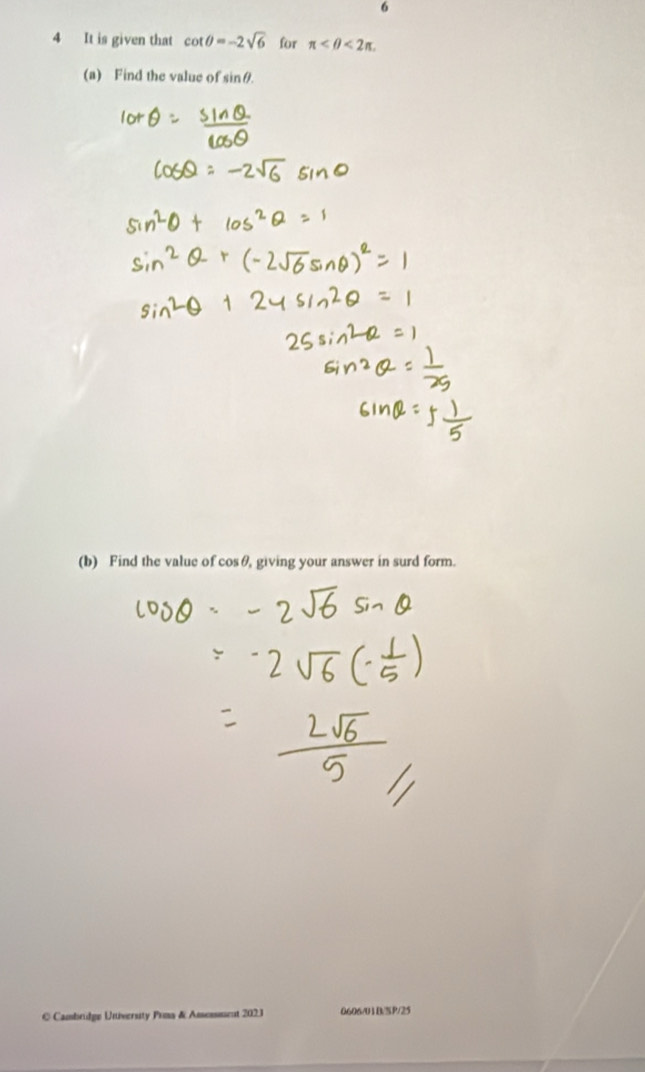 6
4 It is given that cot θ = −2√6 for π < θ < 2π.
(a) Find the value of sin θ.
cot θ = sin θ / cos θ
cos θ = -2√6 sin θ
sin²θ + cos²θ = 1
sin²θ + (-2√6 sin θ)² = 1
sin²θ + 24 sin²θ = 1
25 sin²θ = 1
sin²θ = 1/25
sin θ = ± 1/5
(b) Find the value of cos θ, giving your answer in surd form.
cos θ = - 2√6 sin θ
= -2√6 (-1/5)
= 2√6 / 5 //
© Cambridge University Press & Assessment 2023 0606/01B/SP/25